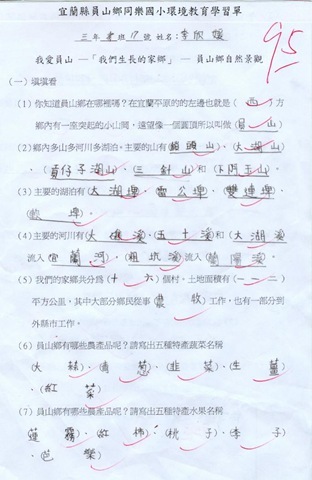 宜蘭縣員山鄉同樂國小環境教育學習單
三年 班17號 姓名：李欣
95
我愛員山 —「我們生長的家鄉」— 員山鄉自然景觀
（一）填填看
(1) 你知道員山鄉在哪裡嗎？在宜蘭平原的的左邊也就是（西）方
鄉內有一座突起的小山岡，遠望像一個圓頂所以叫做（員山）
(2) 鄉內多山多河川多湖泊。主要的山有（饅頭山）、（大湖山）
、（員仔子湖山）、（三針山）和（下阿玉山）。
(3) 主要的湖泊有（大湖埤）、（雷公埤）、（雙連埤）、
（軟埤）。
(4) 主要的河川有（大礁溪）、（五十溪）和（大湖溪）
流入（宜蘭河）、（粗坑溪）流入（蘭陽溪）。
(5) 我們的家鄉共分為（十六）個村。土地面積有（一一二）
平方公里，其中大部分鄉民從事（農牧）工作，也有一部分到
外縣市工作。
(6) 員山鄉有哪些農產品呢？請寫出五種特產蔬菜名稱
（大蒜）、（青蔥）、（韭菜）、（生薑）
、（紅菜）
(7) 員山鄉有哪些農產品呢？請寫出五種特產水果名稱
（蓮霧）、（紅柿）、（桃子）、（李子）
、（芭樂）